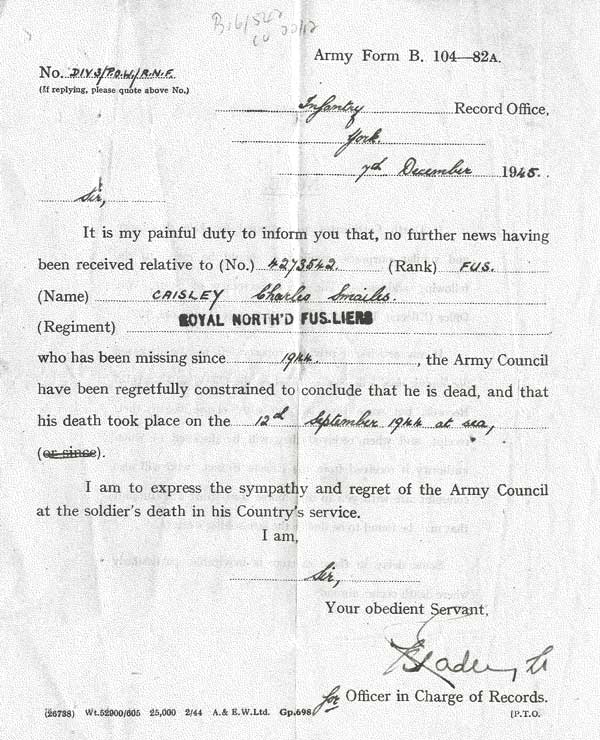 B.6/542
Army Form B. 104—82A.
No. DIV 3/P.O.W./R.N.F.
(If replying, please quote above No.)
Infantry Record Office,
York.
7th December 1945.
Sir,
It is my painful duty to inform you that, no further news having
been received relative to (No.) 4273542. (Rank) FUS.
(Name) CAISLEY Charles Smailes.
(Regiment) ROYAL NORTH'D FUS.LIERS
who has been missing since 1944, the Army Council
have been regretfully constrained to conclude that he is dead, and that
his death took place on the 12th September 1944 at sea,
(or since).
I am to express the sympathy and regret of the Army Council
at the soldier's death in his Country's service.
I am,
Sir,
Your obedient Servant,
for Officer in Charge of Records.
(26738) Wt.52900/605 25,000 2/44 A. & E.W.Ltd. Gp.698
[P.T.O.